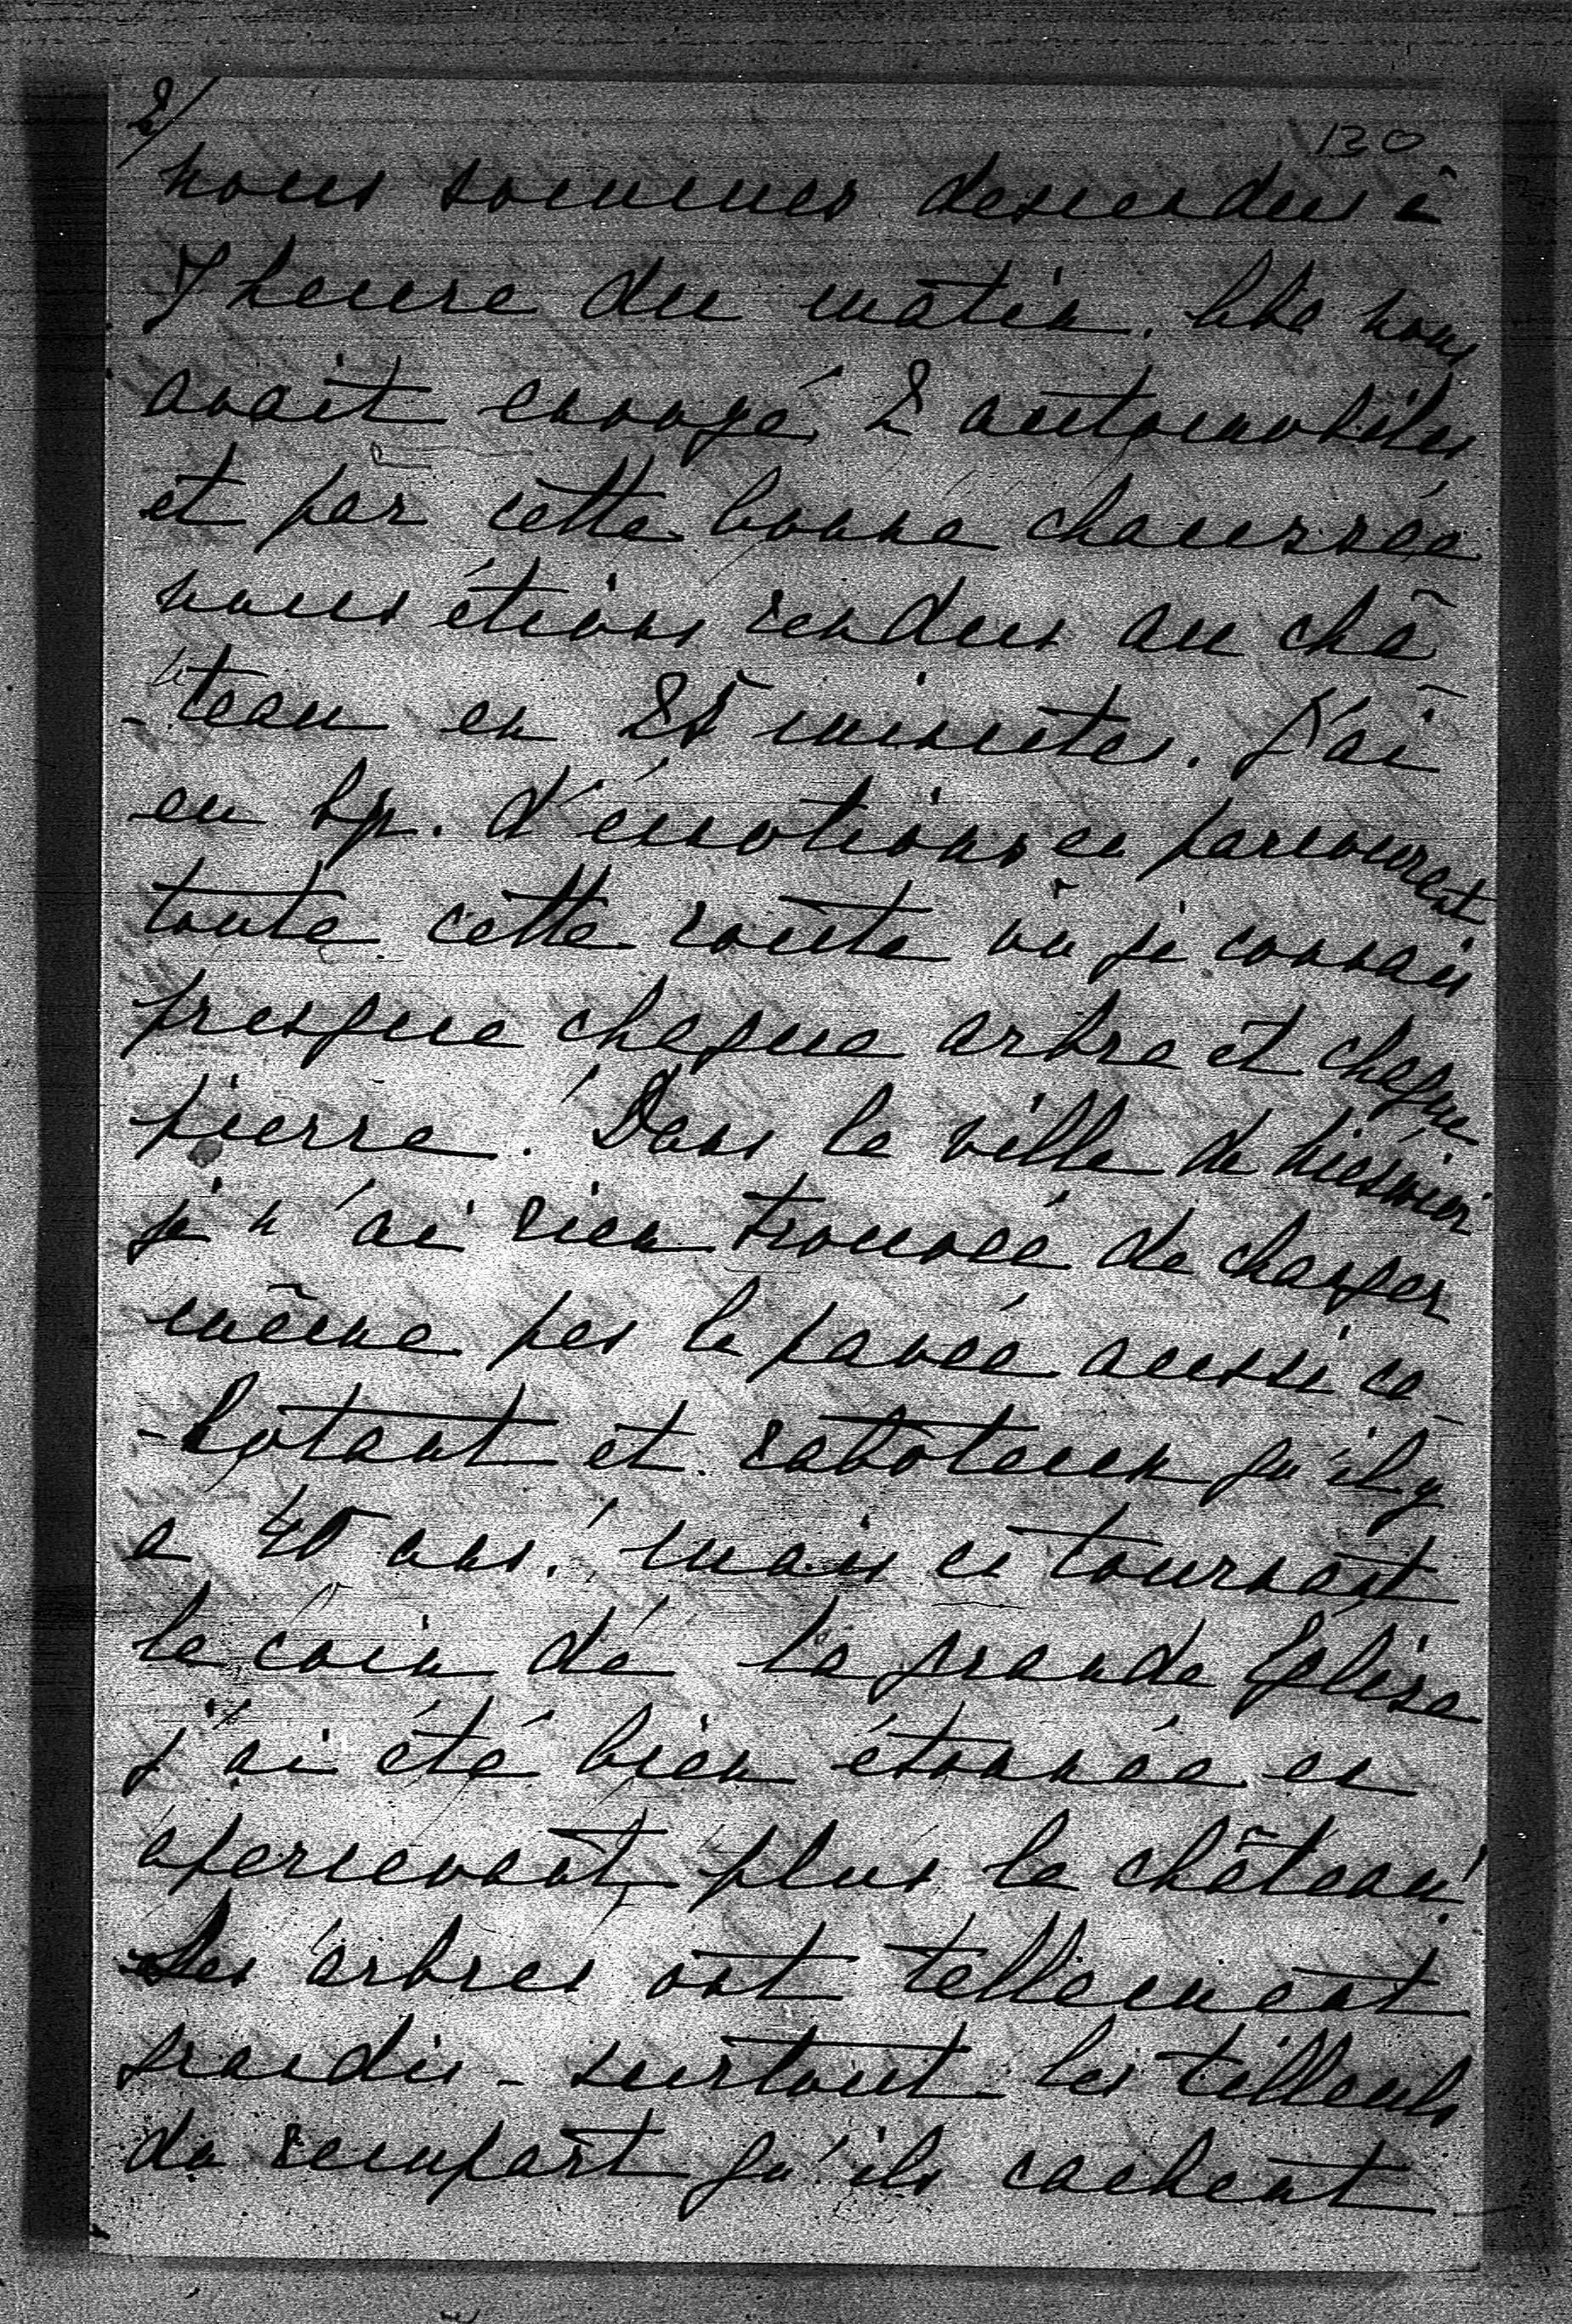 2/
130
nous sommes descendus à
7 heure du matin. Bibe nous
avait envoyé 2 automobiles
et par cette bonne chaussée
nous étions rendus au châ
-teau en 25 minutes. J'ai
eu bp. d'émotions en parcourant
toute cette route où je connais
presque chaque arbre et chaque
pierre. Dans la ville de Niesvier
je n'ai rien trouvé de changer
même pas le pavée aussi ca-
-hotant et raboteux qu'il y
a 40 ans! mais en tournant
le coin de la grande Eglise
j'ai été bien étonnée en
apercevant plus le château!
Les arbres ont tellement
grandis - surtout les tilleuls
du rempart qu'ils cachent